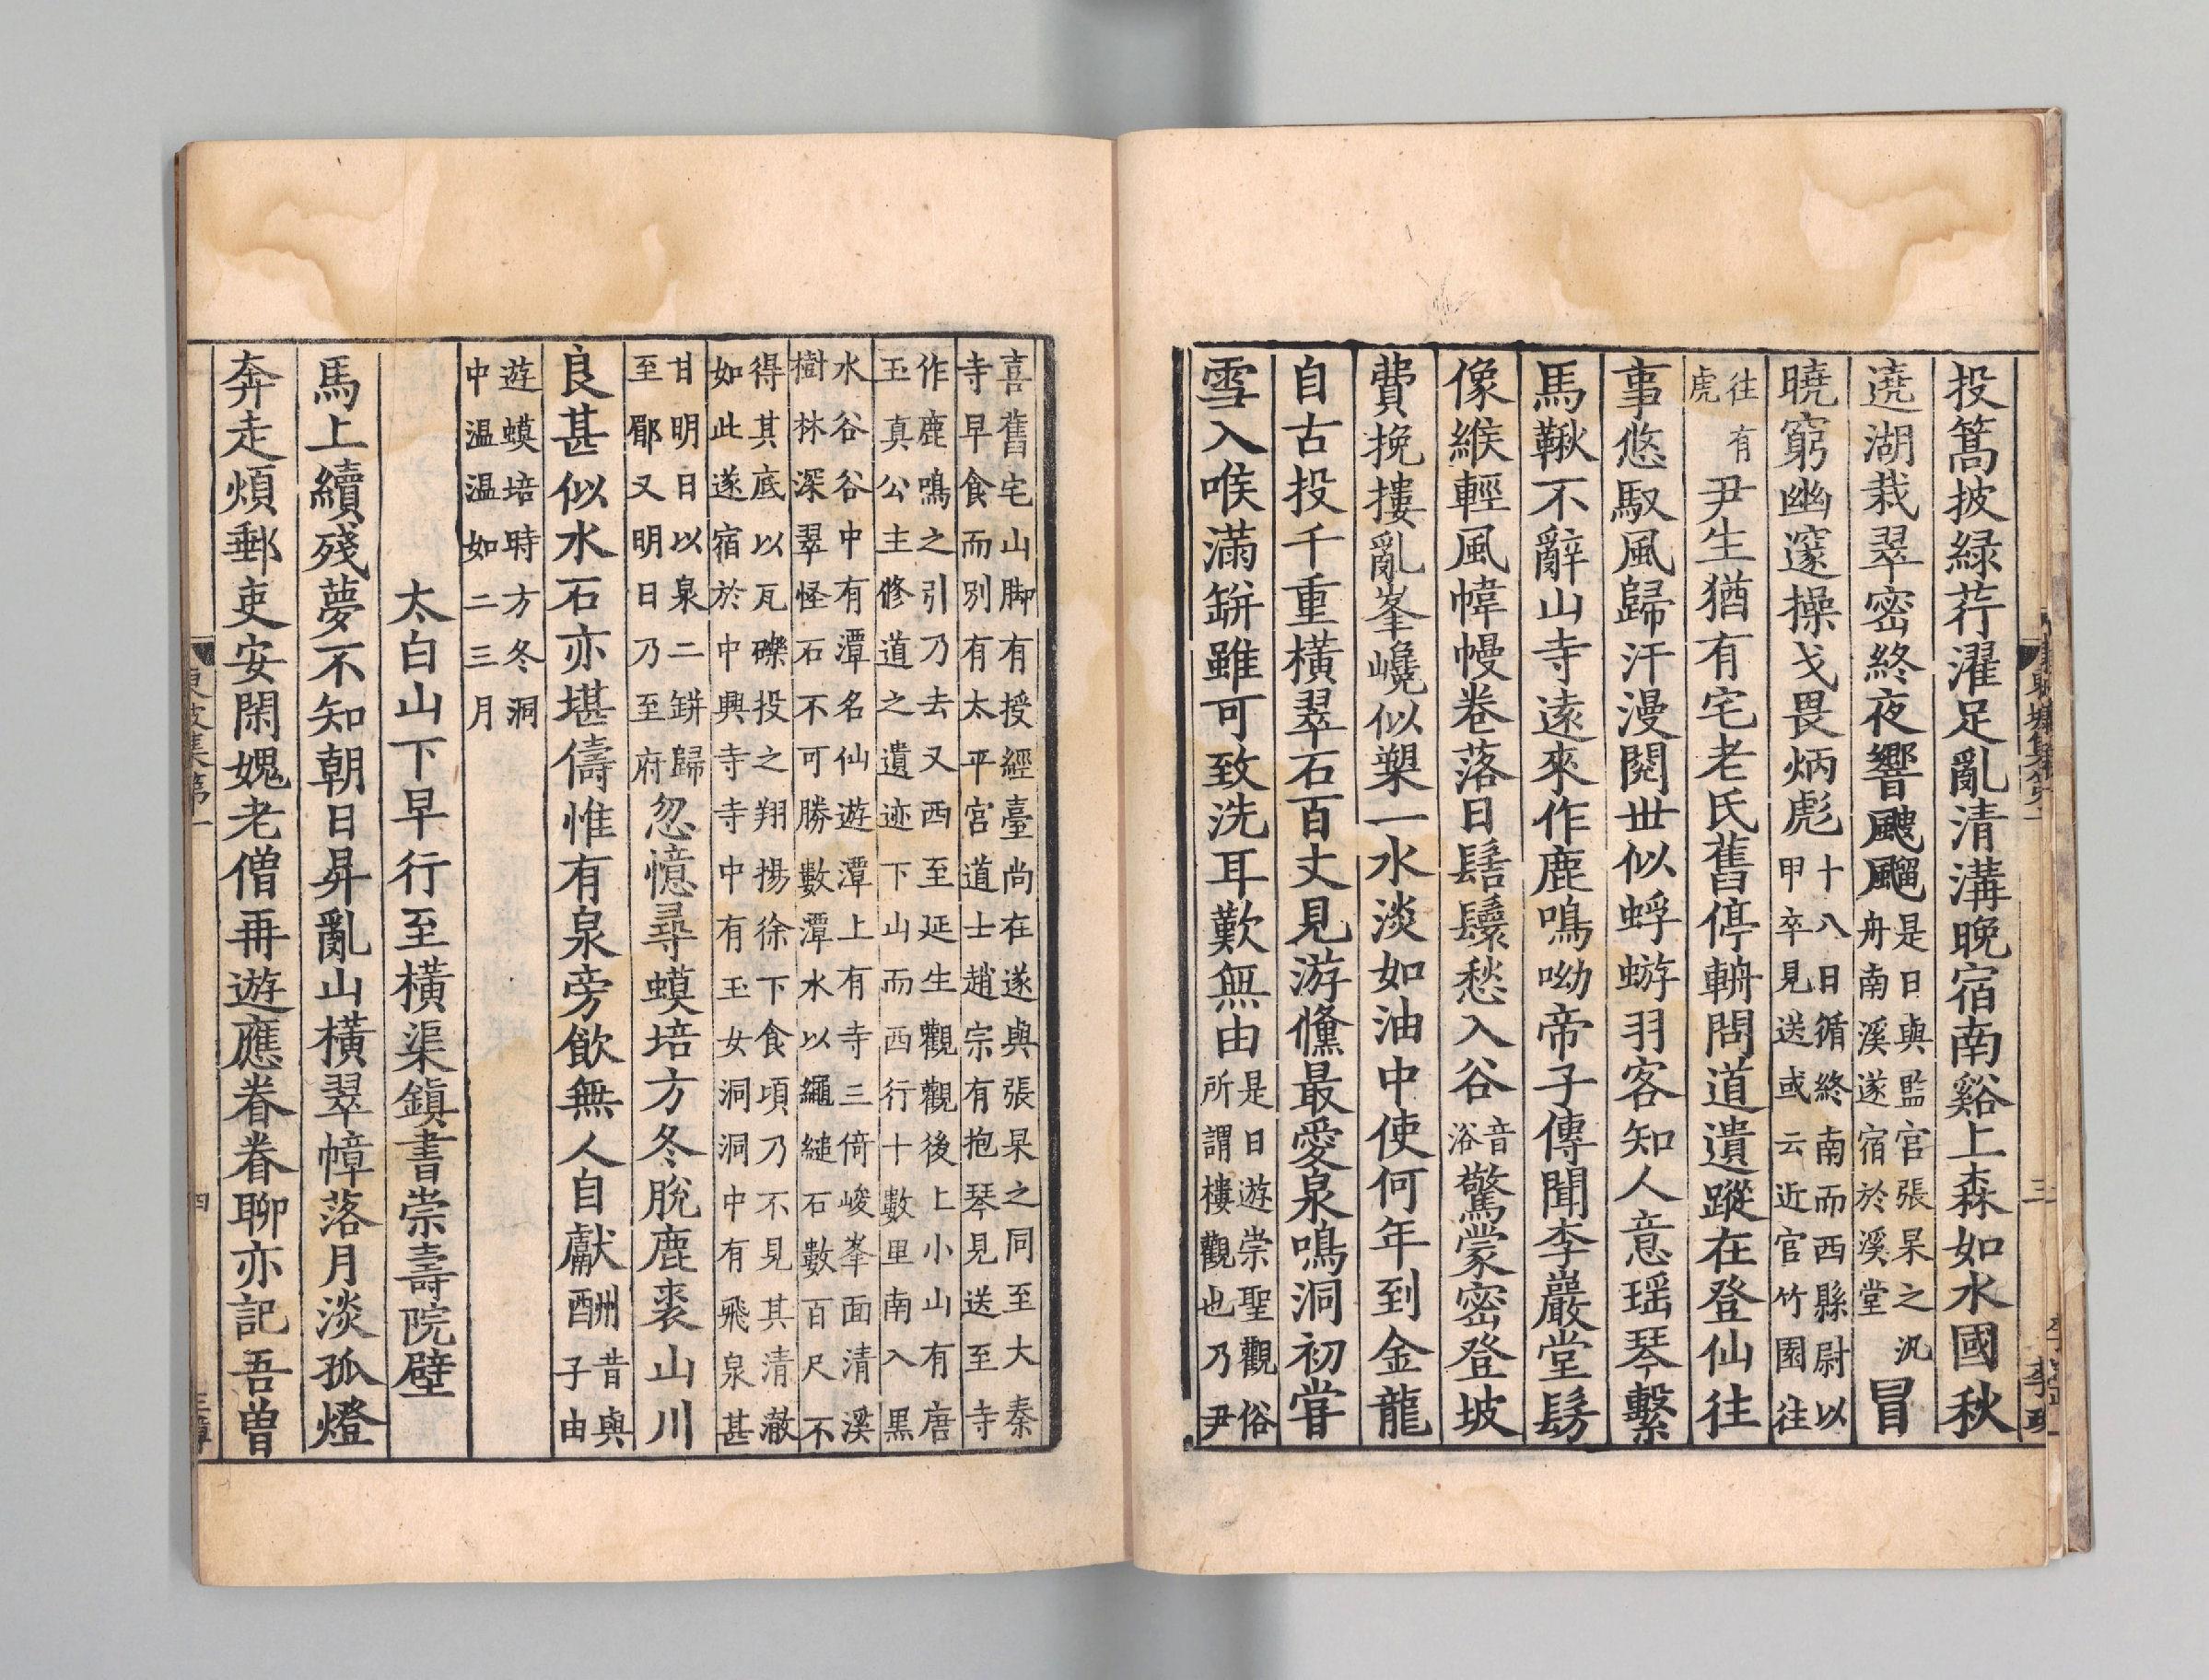 投篙披緑荇濯足亂清溝晚宿南谿上森如水國秋
遶湖栽翠密終夜響颼飀是日與監官張杲之汎舟南溪遂宿於溪堂冒
曉窮幽邃操戈畏炳彪十八日循終南而西縣尉以甲卒見送或云近官竹園往
往有虎尹生猶有宅老氏舊停輈問道遺蹤在登仙往
事悠馭風歸汗漫閱世似蜉蝣羽客知人意瑶琴繫
馬鞦不辭山寺遠來作鹿鳴呦帝子傳聞李巖堂髣
像緱輕風幃幔卷落日髻鬟愁入谷音浴驚蒙密登坡
費挽摟亂峯巉似槊一水淡如油中使何年到金龍
自古投千重橫翠石百丈見游鯈最愛泉鳴洞初嘗
雪入喉滿缾雖可致洗耳歎無由是日遊崇聖觀俗所謂樓觀也乃尹
喜舊宅山脚有授經臺尚在遂與張杲之同至大秦寺早食而別有太平宮道士趙宗有抱琴見送至寺
作鹿鳴之引乃去又西至延生觀觀後上小山有唐玉真公主修道之遺迹下山而西行十數里南入黑
水谷谷中有潭名仙遊潭上有寺三倚峻峯面清溪樹林深翠怪石不可勝數潭水以繩縋石數百尺不
得其底以瓦礫投之翔揚徐下食頃乃不見其清澈如此遂宿於中興寺寺中有玉女洞洞中有飛泉甚
甘明日以泉二缾歸至郿又明日乃至府忽憶尋蟆培方冬脫鹿裘山川
良甚似水石亦堪儔惟有泉旁飲無人自獻酬昔與子由
遊蟆培時方冬洞中温温如二三月
太白山下早行至橫渠鎮書崇壽院壁
馬上續殘夢不知朝日昇亂山橫翠幛落月淡孤燈
奔走煩郵吏安閑媿老僧再遊應眷眷聊亦記吾曾
東坡集第一
四